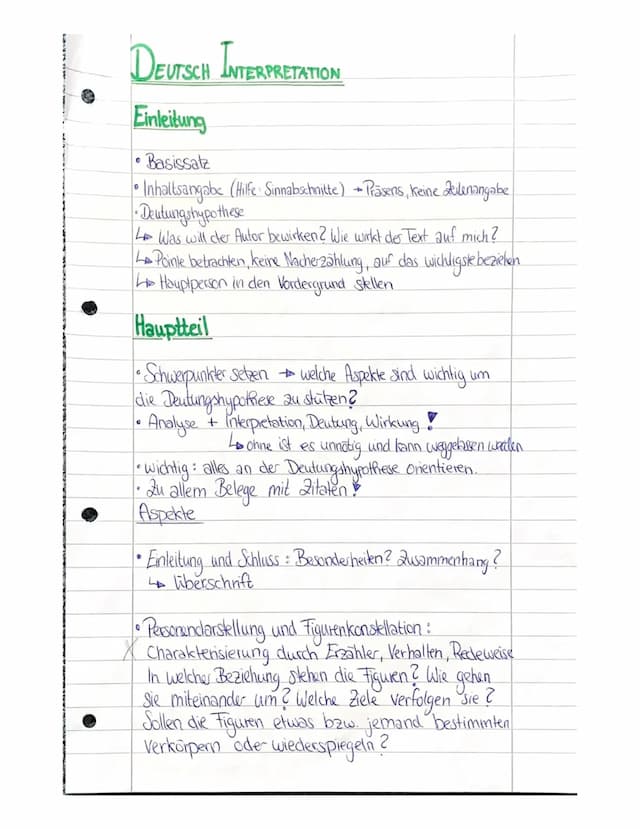 DEUTSCH INTERPRETATION
Einleitung
• Basissatz
• Inhaltsangabe (Hilfe: Sinnabschnitte) → Präsens, keine Zeilenangabe
• Deutungshypothese
↳ Was will der Autor bewirken? Wie wirkt der Text auf mich?
↳ Pointe betrachten, keine Nacherzählung, auf das wichtigste beziehen
↳ Hauptperson in den Vordergrund stellen
Hauptteil
• Schwerpunkte setzen → welche Aspekte sind wichtig um
die Deutungshypothese zu stützen?
• Analyse + Interpretation, Deutung, Wirkung!
↳ ohne ist es unnötig und kann weggelassen werden
• wichtig: alles an der Deutungshypothese orientieren.
• Zu allem Belege mit Zitaten!
Aspekte
• Einleitung und Schluss: Besonderheiten? Zusammenhang?
↳ Überschrift
• Personendarstellung und Figurenkonstellation:
X Charakterisierung durch Erzähler, Verhalten, Redeweise
In welcher Beziehung stehen die Figuren? Wie gehen
Sie miteinander um? Welche Ziele verfolgen sie?
Sollen die Figuren etwas bzw. jemand bestimmten
verkörpern oder wiederspiegeln?